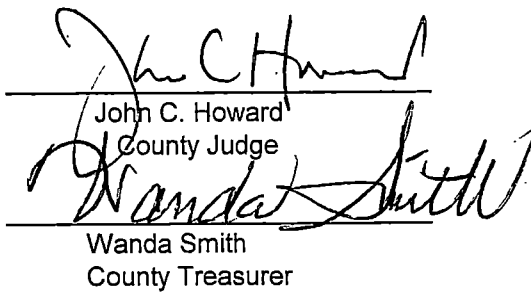 John C Howard
John C. Howard
County Judge
Wanda Smith
Wanda Smith
County Treasurer